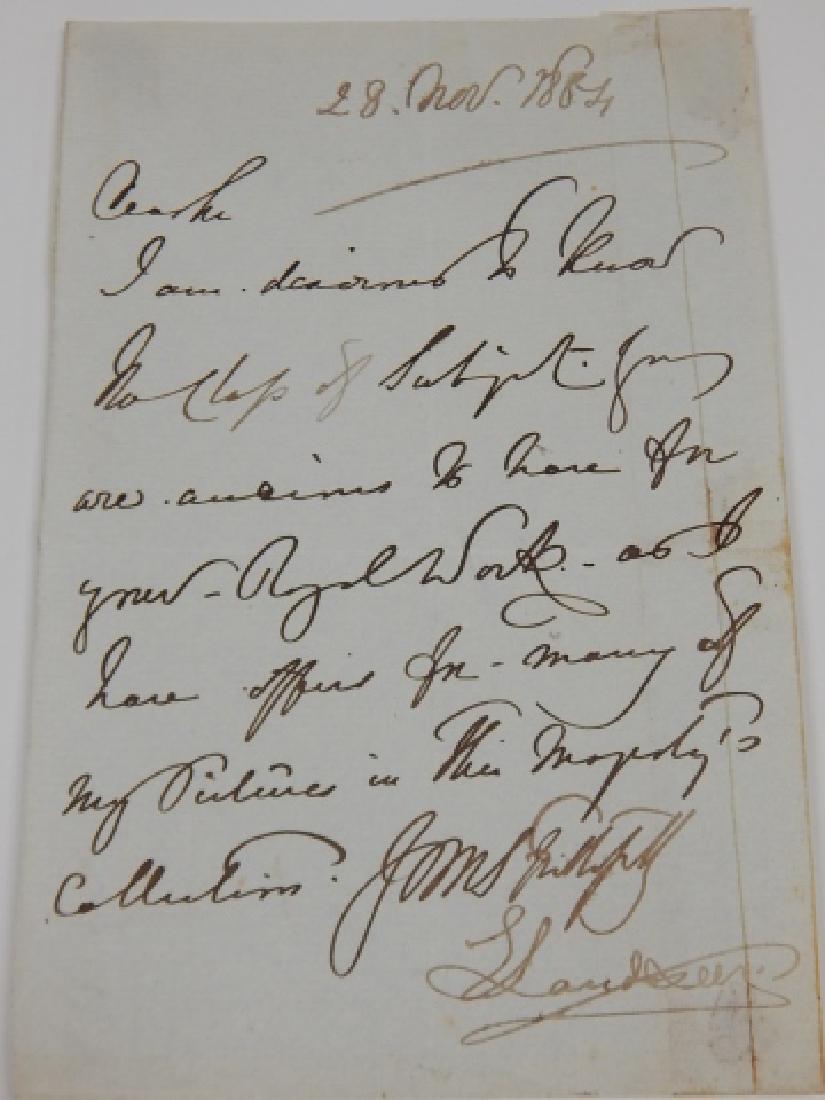 28. Nov. 1854
I am desirous to know
the Class of Subject you
are anxious to have for
your Royal Work - as I
have offers for many of
my Pictures in Her Majesty's
Collection. Yours faithfully
E Landseer